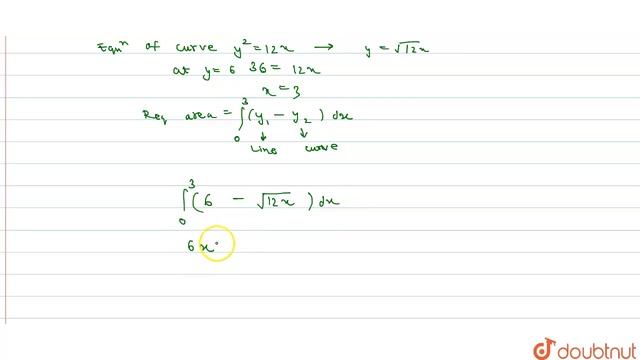 Eqnⁿ of curve y² = 12x → y = √12x
at y = 6 36 = 12x
x = 3
Req area = ∫₀³ (y₁ - y₂) dx
↓ ↓
Line curve
∫₀³ (6 - √12x) dx
6x
doubtnut